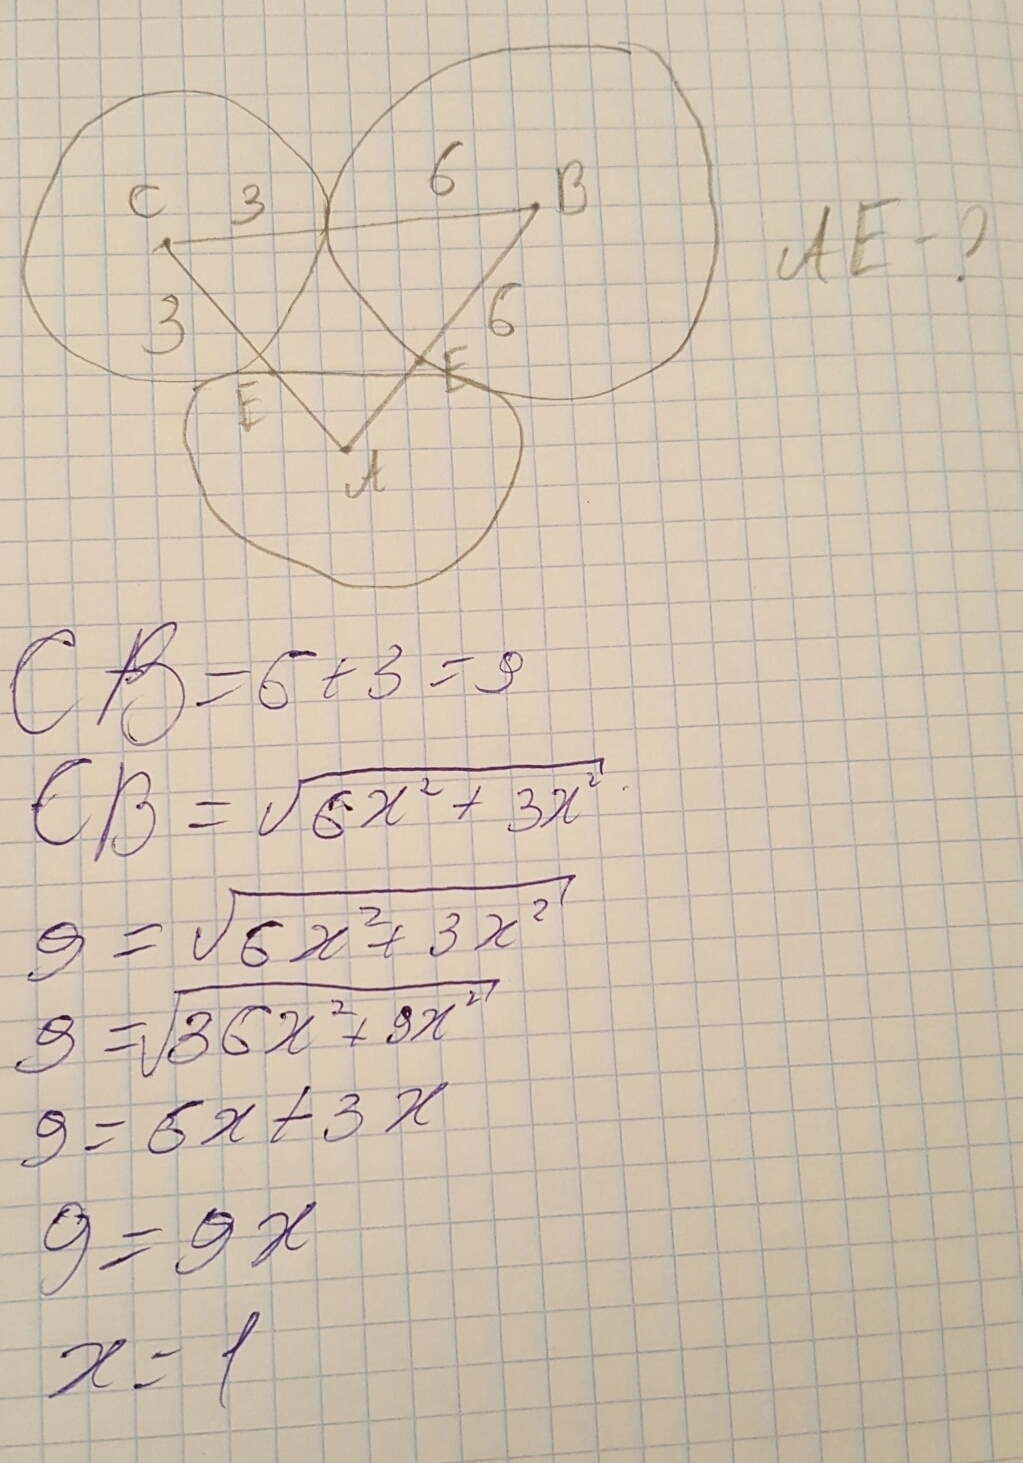 C 3 6 B
AE - ?
3 6
E E
A
CB = 6 + 3 = 9
CB = √(6x² + 3x²)
9 = √(6x² + 3x²)
9 = √(36x² + 9x²)
9 = 6x + 3x
9 = 9x
x = 1